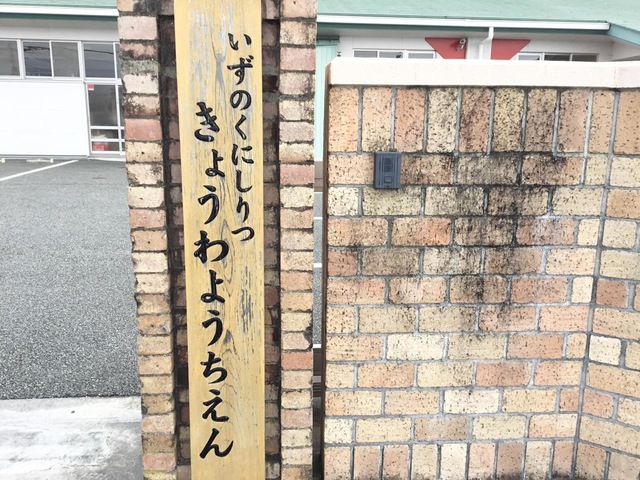 いずのくにしりつ
きょうわようちえん